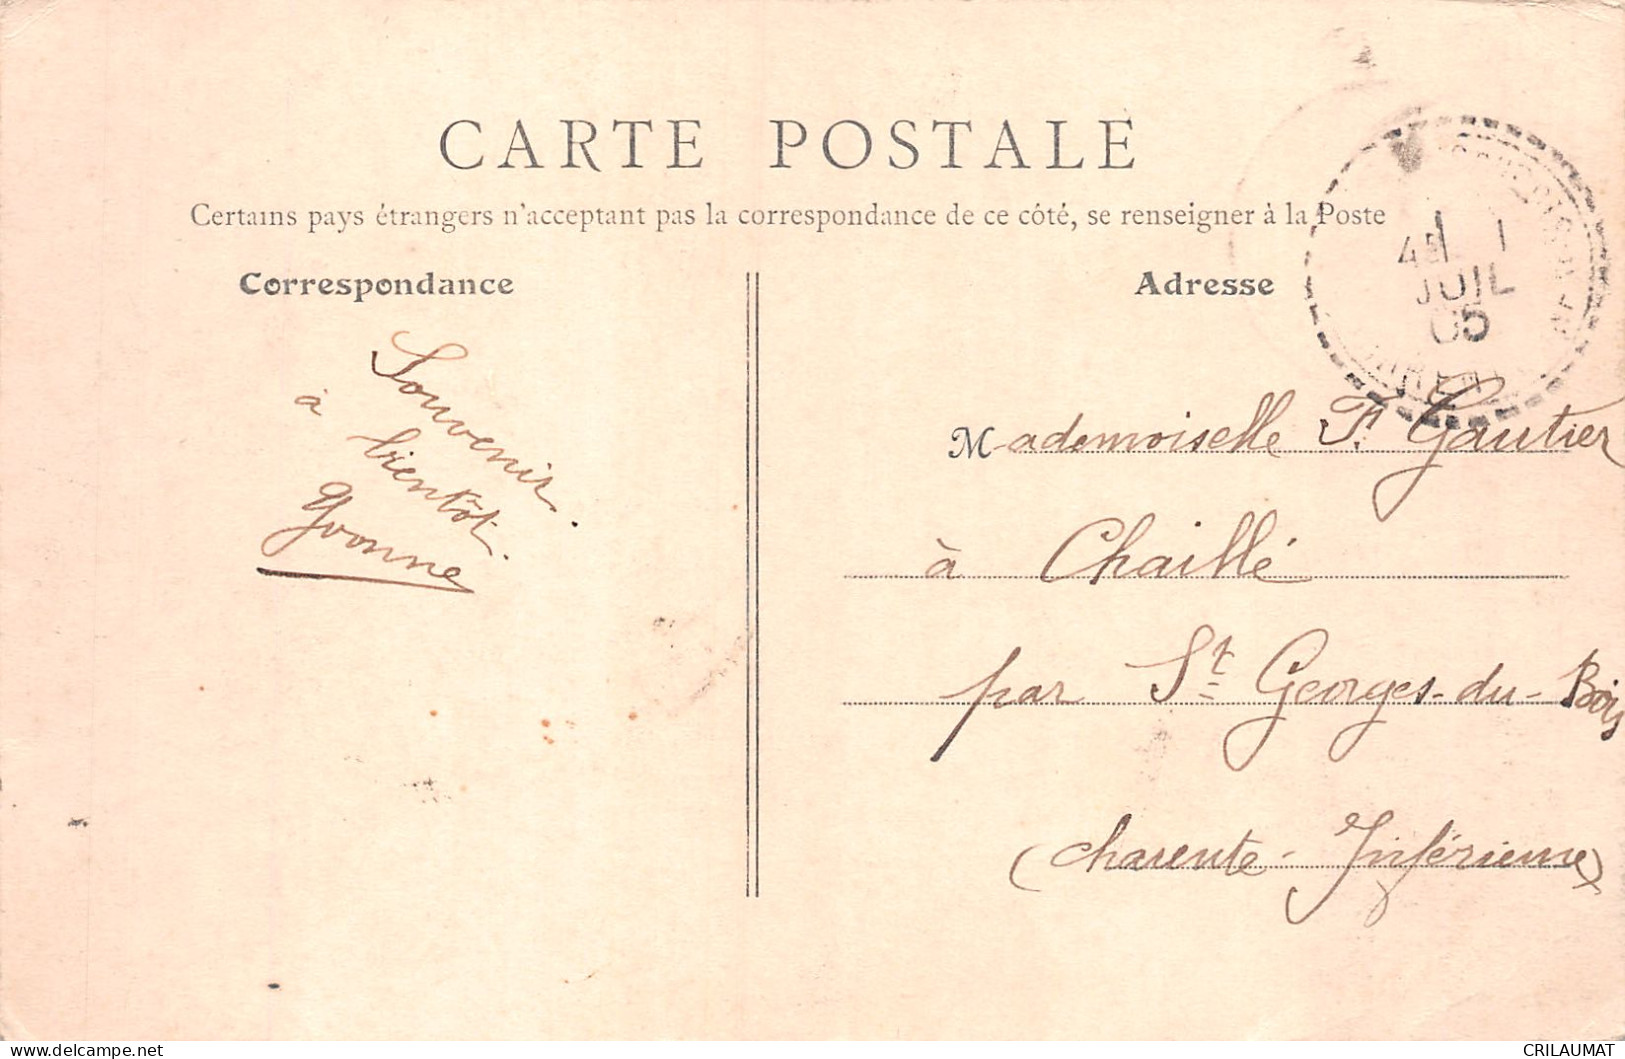 CARTE POSTALE
Certains pays étrangers n'acceptant pas la correspondance de ce côté, se renseigner à la Poste
Correspondance
Adresse
JUIL
05
Souvenir
à bientôt.
Yvonne
Mademoiselle F. Gautier
à Chaillé
par St Georges-du-Bois
(Charente-Inférieure)
delcampe.net
CRILAUMAT